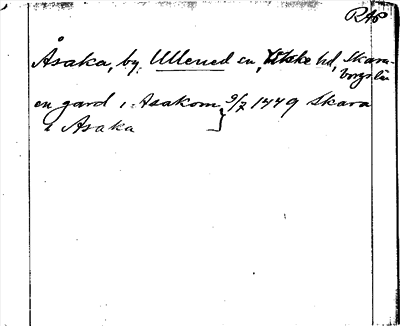 RAP
Åsaka, by. Ullened sn, Viske hd, Skara-
borgs län
en gard i Asakom } 9/7 1449 Skara
i Asaka